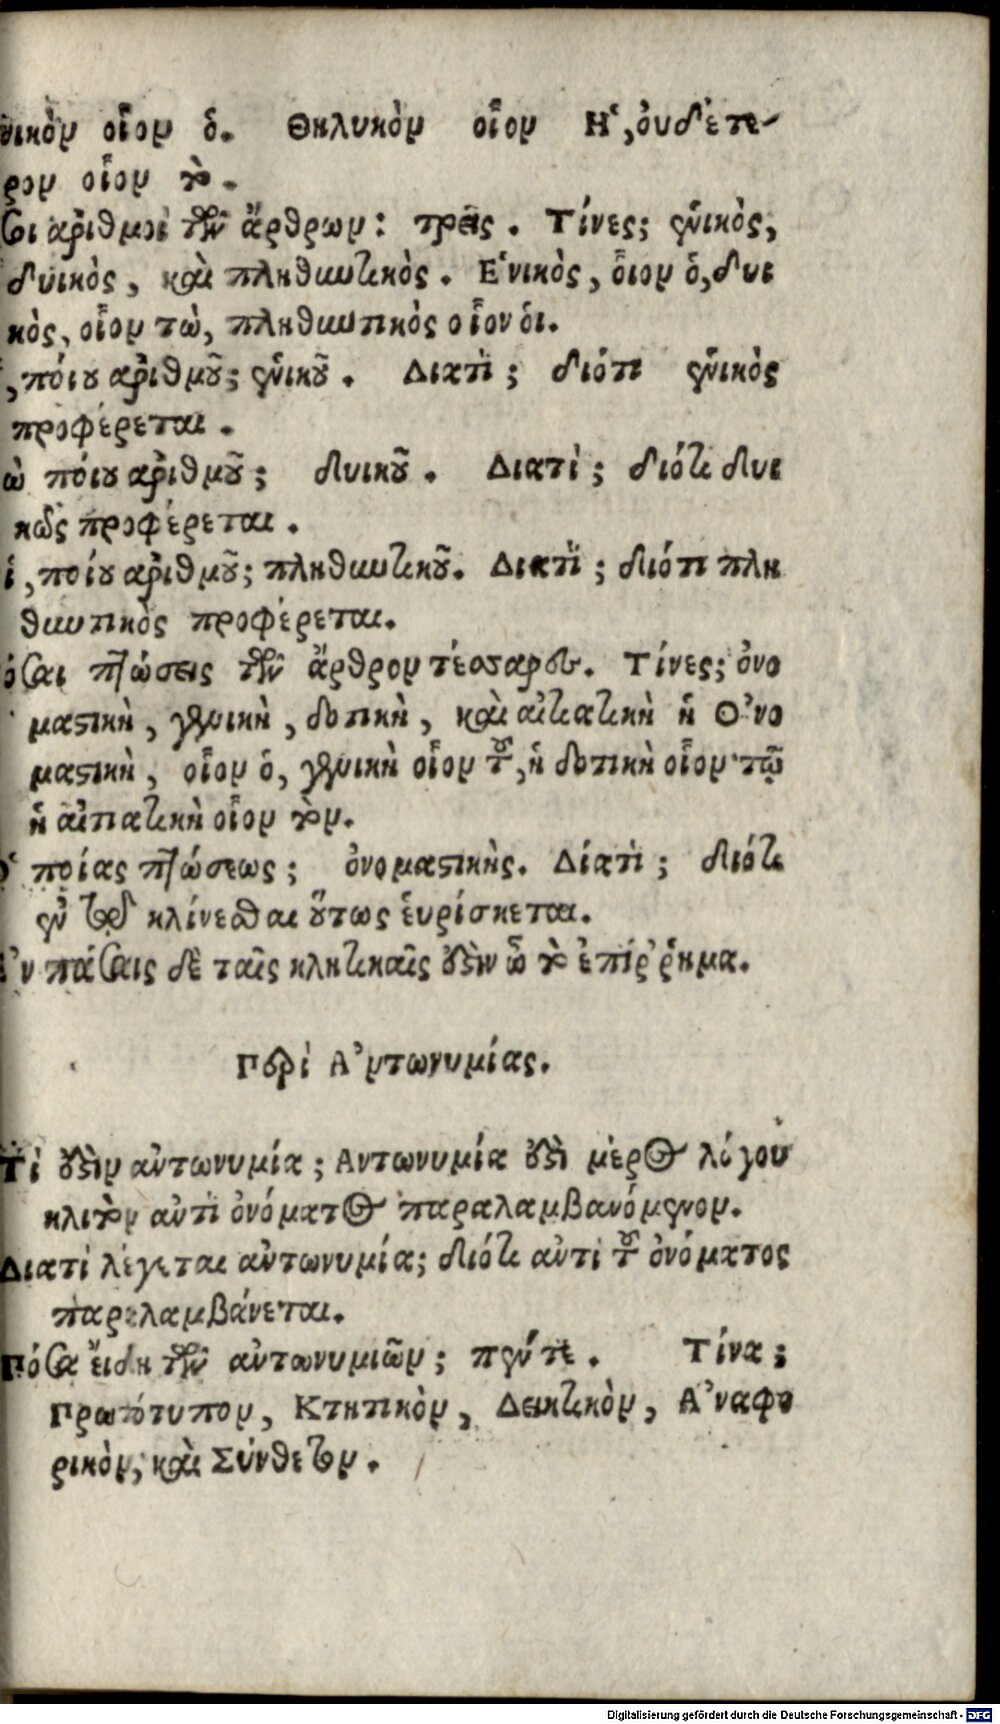 νικὸν οἷον ὁ. Θηλυκὸν οἷον Ἡ, ὀυδέτε-
ρον οἷον τὸ.
σοι ἀριθμοὶ τῶν ἄρθρων: τρεῖς. Τίνες; ἑνικὸς,
δυικὸς, καὶ πληθυντικὸς. Ἑνικὸς, οἷον ὁ, δυι
κὸς, οἷον τὼ, πληθυντικὸς οἷον ὁι.
, πόιου ἀριθμοῦ; ἑνικοῦ. Διατὶ; διότι ἑνικὸς
προφέρεται.
ὼ πόιου ἀριθμοῦ; δυικοῦ. Διατὶ; διότι δυι
κῶς προφέρεται.
ἱ, ποίου ἀριθμοῦ; πληθυντικοῦ. Διατὶ; διότι πλη
θυντικὸς προφέρεται.
όσαι πτώσεις τῶν ἄρθρον τέσσαρες. Τίνες; ὀνο
μαστικὴ, γενικὴ, δοτικὴ, καὶ αἰτιατικὴ ἡ Ὀνο
μαστικὴ, οἷον ὁ, γενικὴ οἷον τοῦ, ἡ δοτικὴ οἷον τῷ
ἡ αἰτιατικὴ οἷον τὸν.
ποίας πτώσεως; ὀνομαστικῆς. Δίατὶ; διότι
ἐν τῷ κλίνεσθαι οὕτως ἑυρίσκεται.
ν πάσαις δὲ ταῖς κλητικαῖς ἐστὶν ὦ τὸ ἐπίῤῥημα.
Περὶ Ἀντωνυμίας.
Τὶ ἐστὶν ἀντωνυμία; Αντωνυμία ἐστὶ μέρος λόγου
κλιτὸν ἀντὶ ὀνόματος παραλαμβανόμενον.
Διατὶ λέγεται ἀντωνυμία; διότι ἀντὶ τοῦ ὀνόματος
παραλαμβάνεται.
Πόσα ἔιδη τῶν ἀντωνυμιῶν; πέντε. Τίνα;
Πρωτότυπον, Κτητικὸν, Δεικτικὸν, Ἀναφο
ρικὸν, καὶ Σύνθετον.
Digitalisierung gefördert durch die Deutsche Forschungsgemeinschaft - DFG